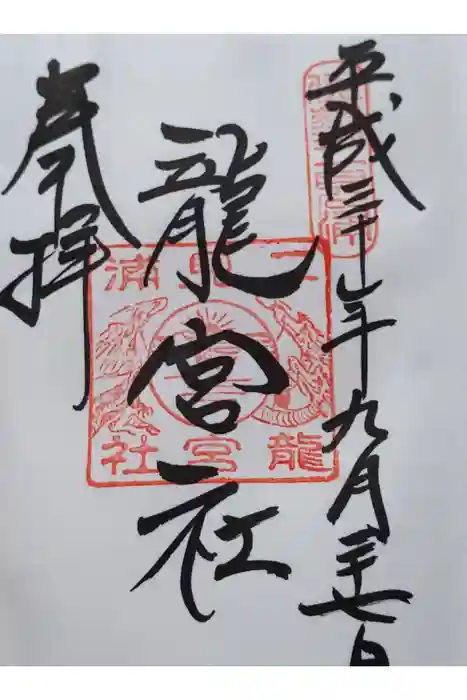 平成三十年九月二十七日
龍宮社
奉拝
二見浦
龍宮社